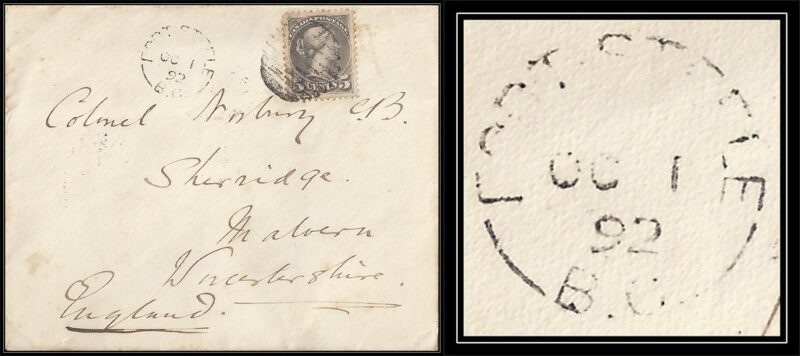 FORT STEELE
OC 1
92
B.C.
CANADA POSTAGE
5 CENTS 5
Colonel Norbury C.B.
Sherridge.
Malvern
Worcestershire.
England.
FORT STEELE
OC 1
92
B.C.